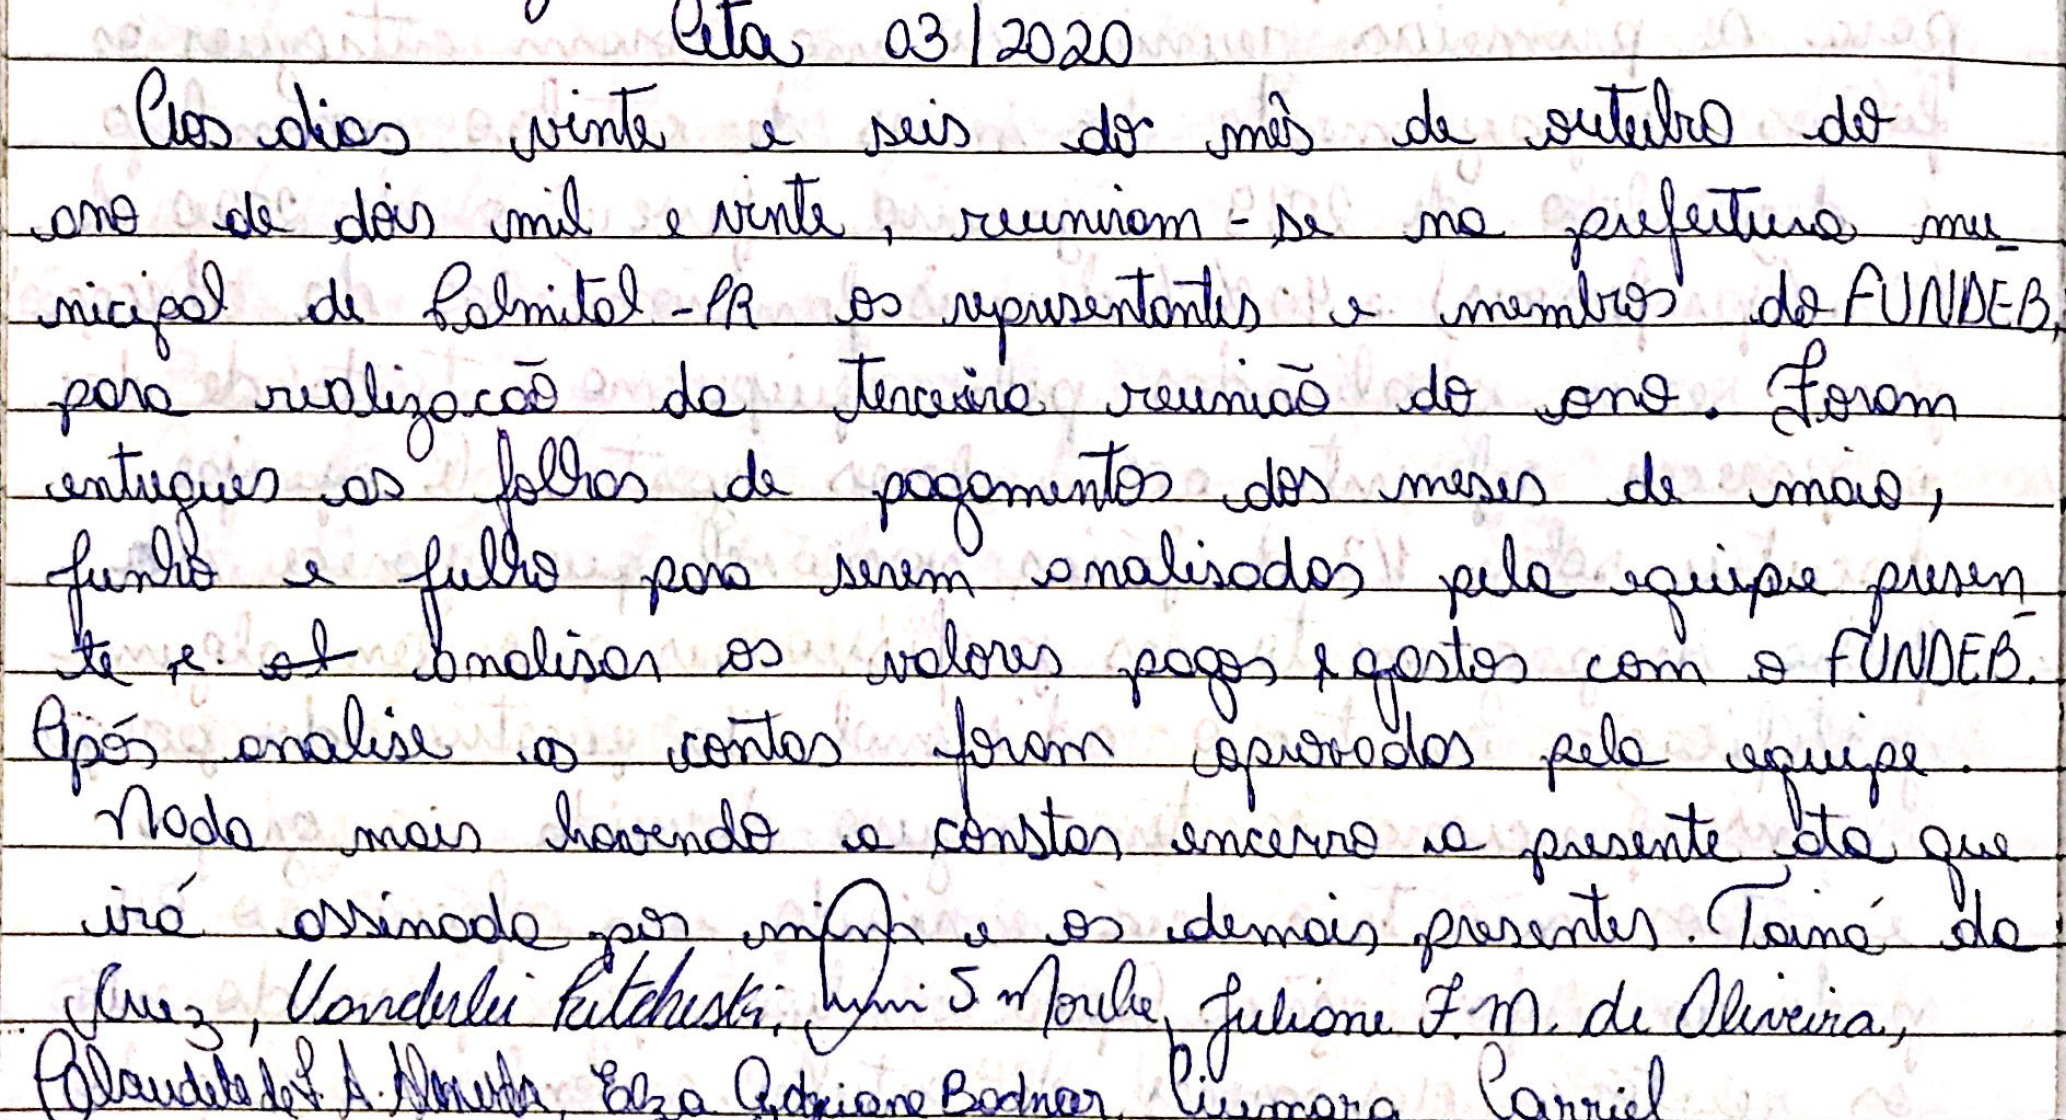 Ata 03/2020
Aos dias vinte e seis do mês de outubro do
ano de dois mil e vinte, reuniram-se na prefeitura mu-
nicipal de Palmital-PR os representantes e membros do FUNDEB,
para realizacão da terceira reunião do ano. Foram
entregues as folhas de pagamentos dos meses de maio,
junho e julho para serem analisados pela equipe presen-
te e analisar os valores pagos e gastos com o FUNDEB.
Após analise as contas foram aprovadas pela equipe.
Nada mais havendo a constar encerro a presente ata que
irá assinada por mim e os demais presentes. Tainá da
Cruz, Vanderlei Kitcheski, S. Julione F. M. de Oliveira,
A. Elza Adriane Bodnar, Carriel